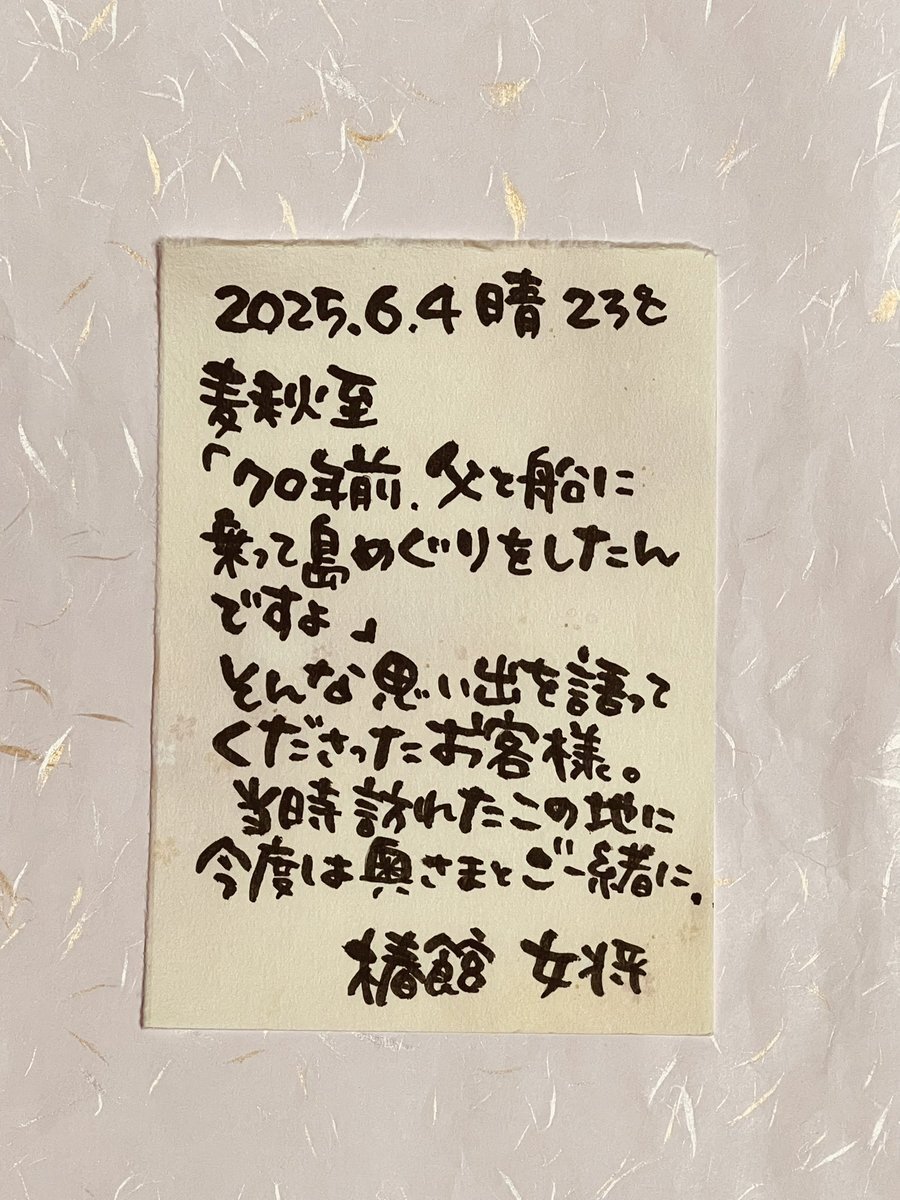 2025.6.4 晴 23℃
麦秋至
「70年前、父と船に
乗って島めぐりをしたん
ですよ」
そんな思い出を語って
くださったお客様。
当時訪れたこの地に
今度は奥さまとご一緒に。
椿館 女将